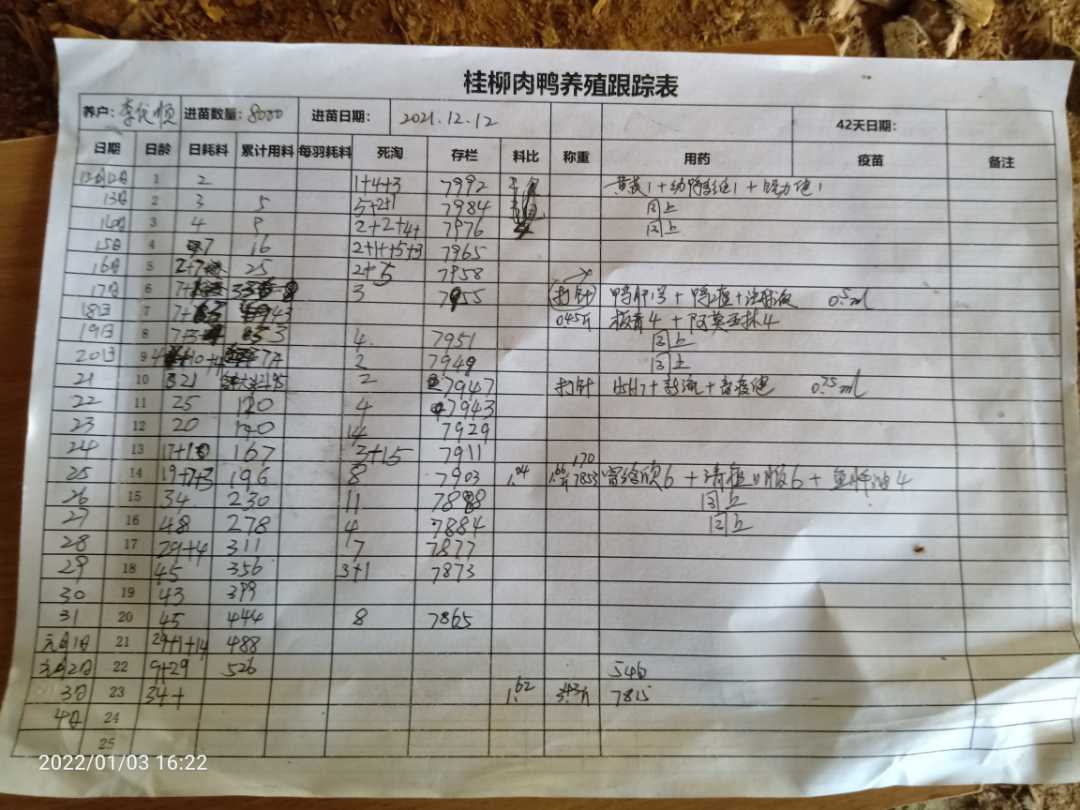 桂柳肉鸭养殖跟踪表
养户: 李代顺 进苗数量: 8000 进苗日期: 2021.12.12 42天日期:
日期 日龄 日耗料 累计用料 每羽耗料 死淘 存栏 料比 称重 用药 疫苗 备注
12月12日 1 2 1+4+3 7992
13日 2 3 5 5+2+1 7984 同上
14日 3 4 9 2+2+4+ 7976 同上
15日 4 7 16 2+1+5+3 7965
16日 5 2+7 25 2+5 7958
17日 6 3 7955 打针 0.5ml
18日 7 0.45斤 板青4 + 阿莫西林4
19日 8 4 7951 同上
20日 9 2 7949 同上
21 10 21 2 7947 打针 H5H7 + 0.75ml
22 11 25 120 4 7943
23 12 20 140 14 7929
24 13 17+10 167 3+15 7911
25 14 19+7+3 196 8 7903 1.04 1.66斤 170 7853 + 清瘟口服6 + 鱼肝油4
26 15 34 230 11 7888 同上
27 16 48 278 4 7884 同上
28 17 29+4 311 7 7877
29 18 45 356 3+1 7873
30 19 43 399
31 20 45 444 8 7865
元月1日 21 29+1+14 488
元月2日 22 9+29 526 546
3日 23 34+ 1.62 3.43斤 7815
4日 24
25
2022/01/03 16:22